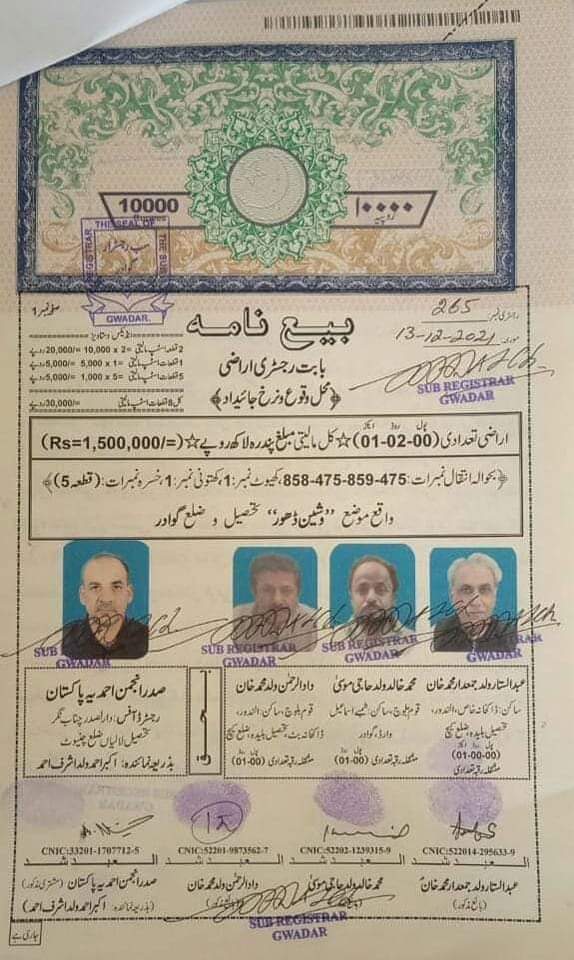 10000
Rupees
۱۰۰۰۰
روپیہ
THE SEAL OF
THE SUB
REGISTRAR
سب رجسٹرار
گوادر
GWADAR.
صفحہ نمبر 1
رجسٹری نمبر 265
مورخہ 13-12-2021
بیع نامہ
SUB REGISTRAR
GWADAR
بابت رجسٹری اراضی
﴿محل وقوع و نرخ جائیداد﴾
2 قطعہ اسٹامپ مالیتی = 2× 10,000 =/20,000 روپے
1 قطعات اسٹامپ مالیتی = 1× 5,000 =/5,000 روپے
5 قطعات اسٹامپ مالیتی = 5× 1,000 =/5,000 روپے
کل 8 قطعات اسٹامپ مالیتی =/30,000 روپے
اراضی تعدادی (01-02-00) ایکڑ روڈ پول ☆ کل مالیتی مبلغ پندرہ لاکھ روپے ☆ (Rs=1,500,000/=)
﴿بحوالہ انتقال نمبرات: 475-859-475-858، کھیوٹ نمبر: 1، کھتونی نمبر: 1، خسرہ نمبرات: (قطعہ 5)﴾
واقع موضع "وشین ڈھور" تحصیل و ضلع گوادر
SUB REGISTRAR
GWADAR
SUB REGISTRAR
GWADAR
SUB REGISTRAR
GWADAR
SUB REGISTRAR
GWADAR
عبدالستار ولد جمعدار محمد خان
ساکن: ڈاکخانہ خاص، الندور،
تحصیل بلیدہ، ضلع کیچ
ایکڑ روڈ پول
(01-00-00)
متکلہ رقبہ تعدادی
محمد خالد ولد حاجی موسیٰ
قوم بلوچ، ساکن: شمبے اسماعیل
وارڈ، گوادر
روڈ پول
(01-00)
متکلہ رقبہ تعدادی
داد الرحمٰن ولد محمد خان
قوم بلوچ، ساکن: الندور،
ڈاکخانہ بٹ، تحصیل بلیدہ، ضلع کیچ
روڈ پول
(01-00)
متکلہ رقبہ تعدادی
بحق
صدر انجمن احمدیہ پاکستان
رجسٹرڈ آفس: دار الصدر چناب نگر
تحصیل لالیاں ضلع چنیوٹ
بذریعہ نمائندہ: اکبر احمد ولد اشرف احمد
CNIC:522014-295633-9
CNIC:52202-1239315-9
CNIC:52201-9873562-7
CNIC:33201-1707712-5
العبد شد
العبد شد
العبد شد
العبد شد
عبدالستار ولد جمعدار محمد خان
(بائع مذکور)
محمد خالد ولد حاجی موسیٰ
داد الرحمٰن ولد محمد خان
(بائع مذکور)
صدر انجمن احمدیہ پاکستان (مشتری مذکور)
(بذریعہ نمائندہ: اکبر احمد ولد اشرف احمد)
SUB REGISTRAR
GWADAR
جاری ہے